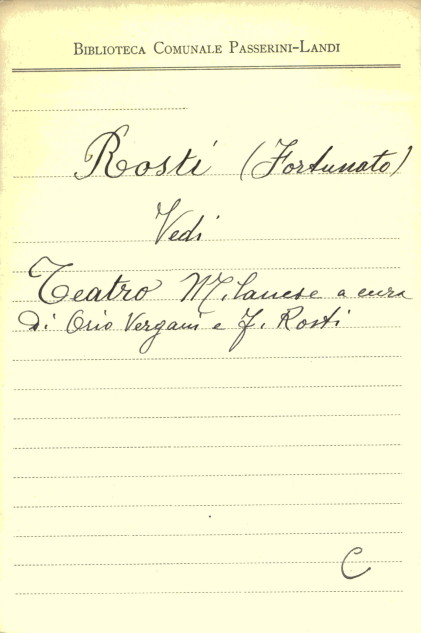 Biblioteca Comunale Passerini-Landi
Rosti (Fortunato)
Vedi
Teatro Milanese a cura
di Orio Vergani e F. Rosti
C